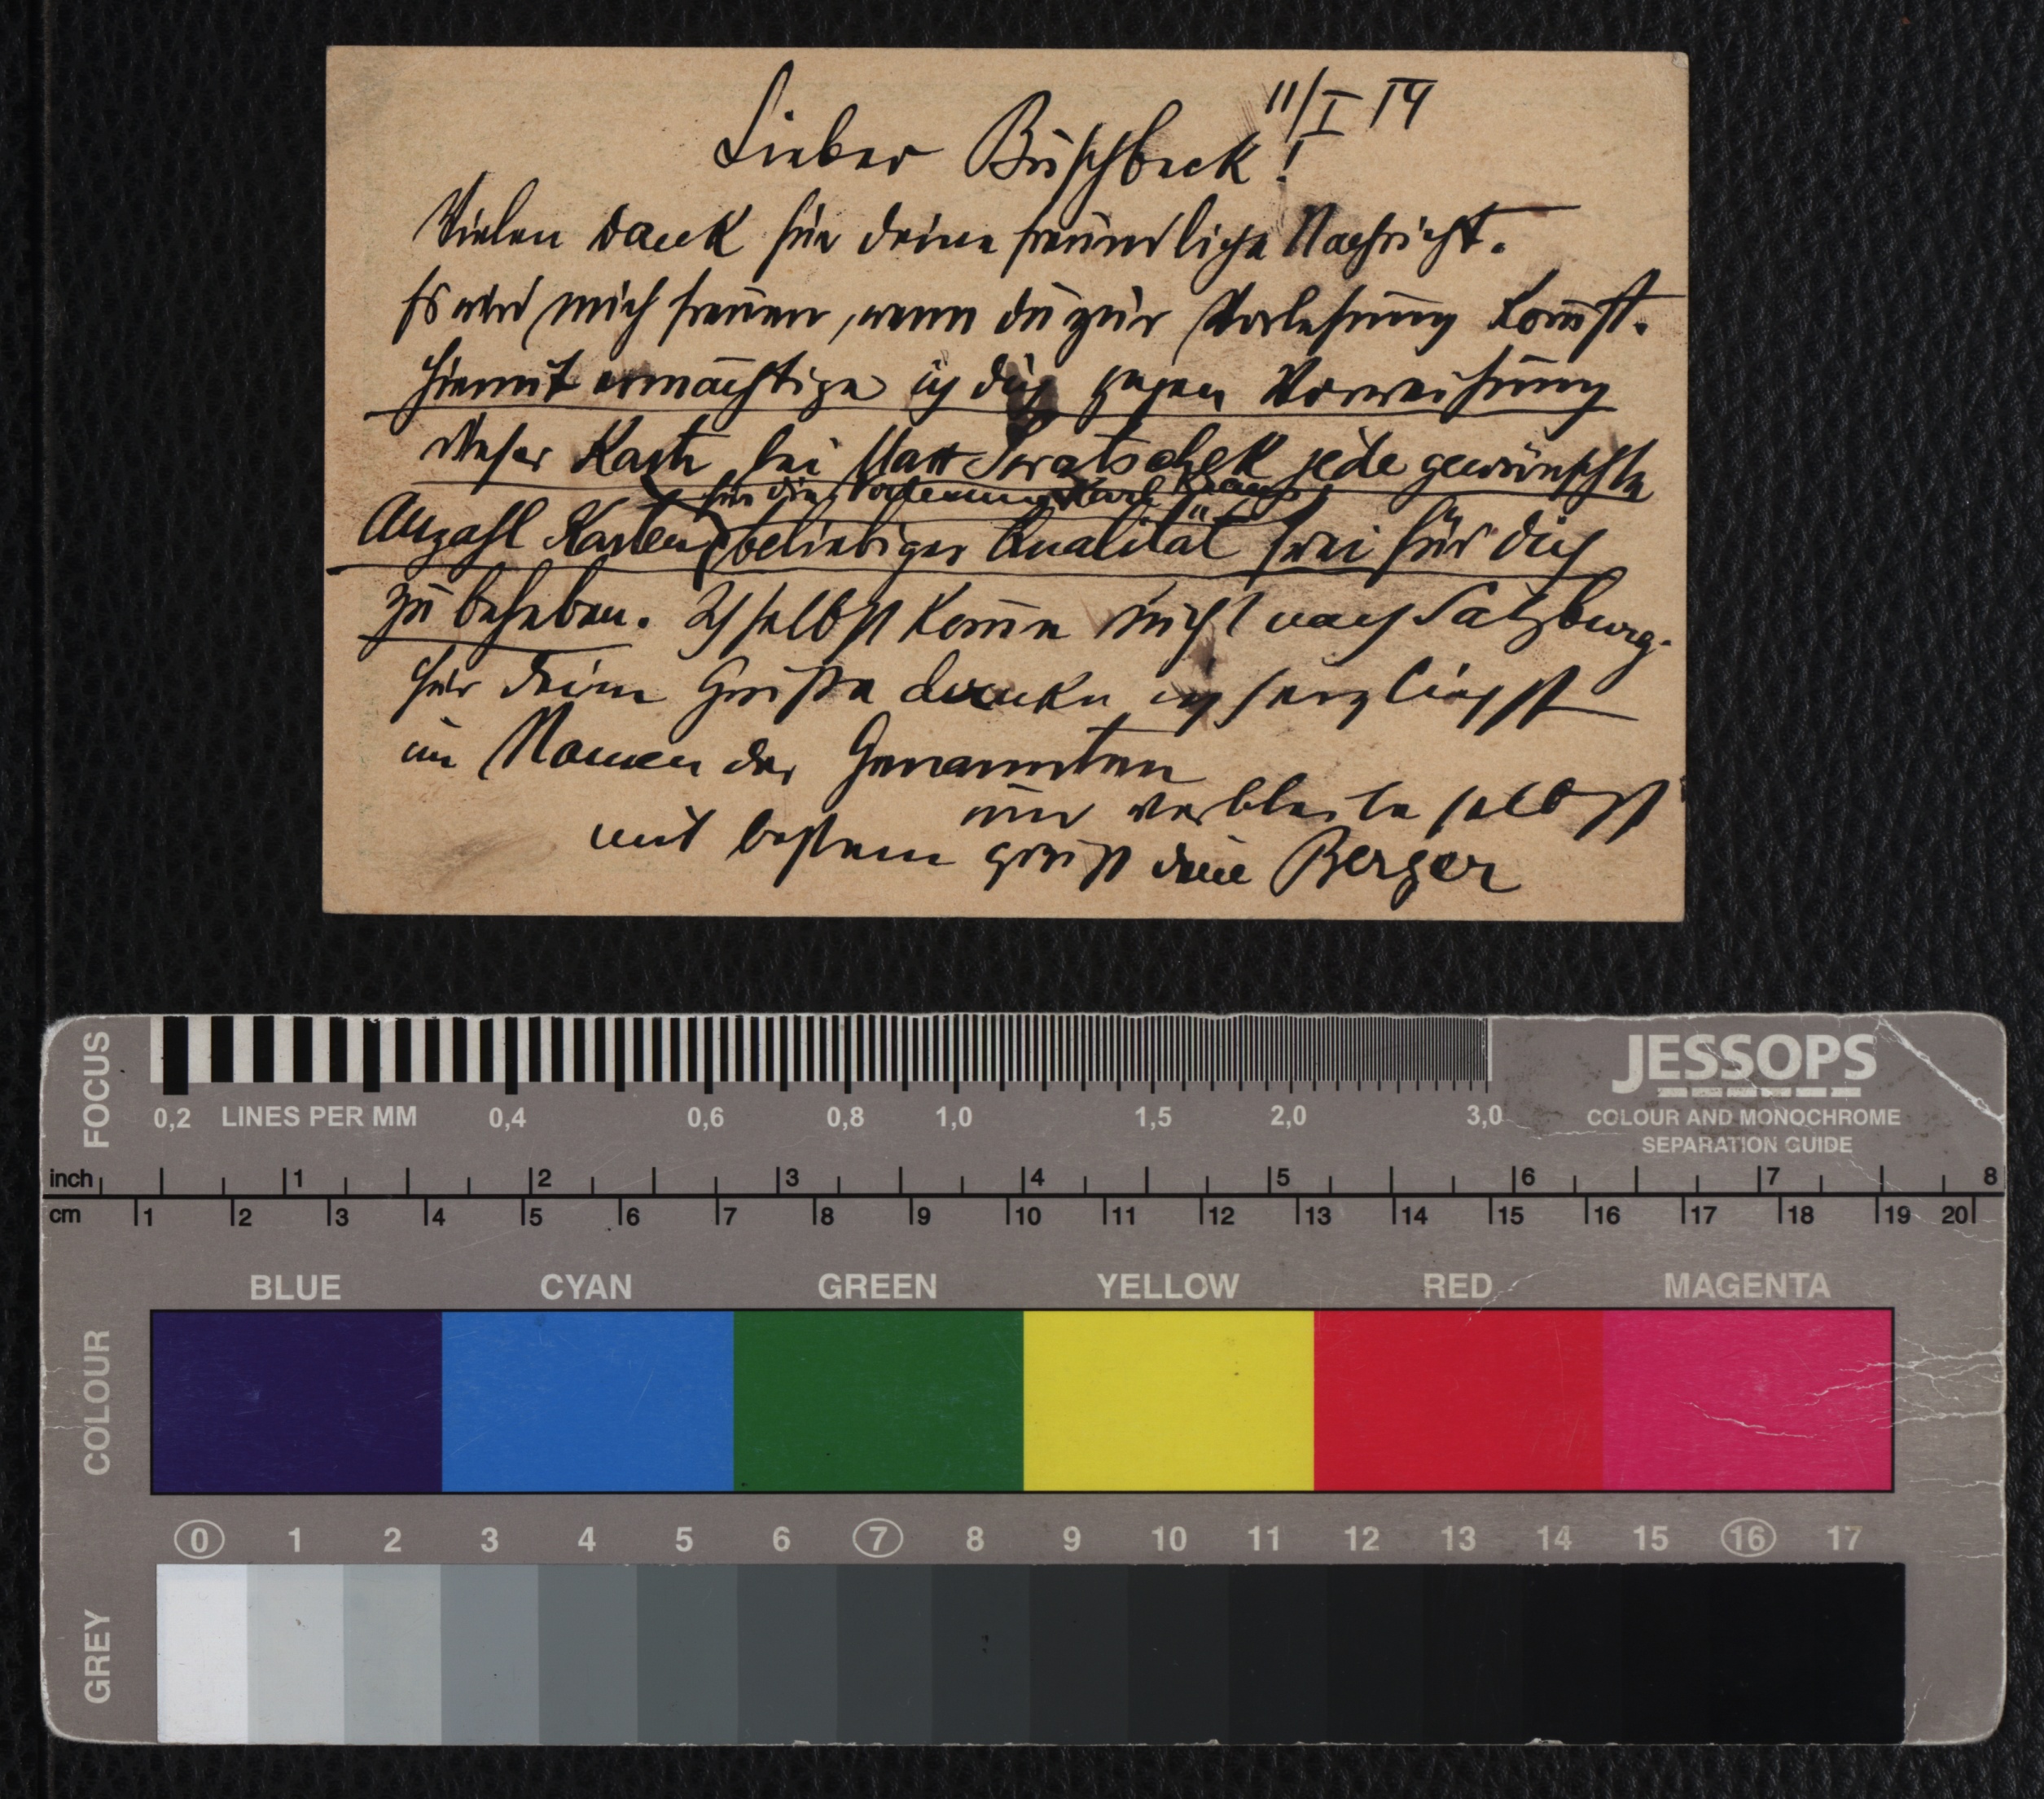 11/I 14
Lieber Buschbeck!
Vielen Dank für deine freundliche Nachricht.
Es wird mich freuen, wenn du zur Vorlesung kom̅st.
Hiemit ermächtige ich dich gegen Vorweisung
dieser Karte bei Swatschek jede gewünschte
für die Vorlesung Karl Kraus
Anzahl Karten beliebiger Qualität frei für dich
zu beheben. Ich selbst kom̅e nicht nach Salzburg.
Für deine Grüsse danke ich herzlichst
im Namen der Genannten
und verbleibe selbst
mit bestem gruss dein Berger
FOCUS
0,2 LINES PER MM 0,4 0,6 0,8 1,0 1,5 2,0 3,0
JESSOPS
COLOUR AND MONOCHROME
SEPARATION GUIDE
inch 1 2 3 4 5 6 7 8
cm 1 2 3 4 5 6 7 8 9 10 11 12 13 14 15 16 17 18 19 20
COLOUR
BLUE CYAN GREEN YELLOW RED MAGENTA
0 1 2 3 4 5 6 7 8 9 10 11 12 13 14 15 16 17
GREY